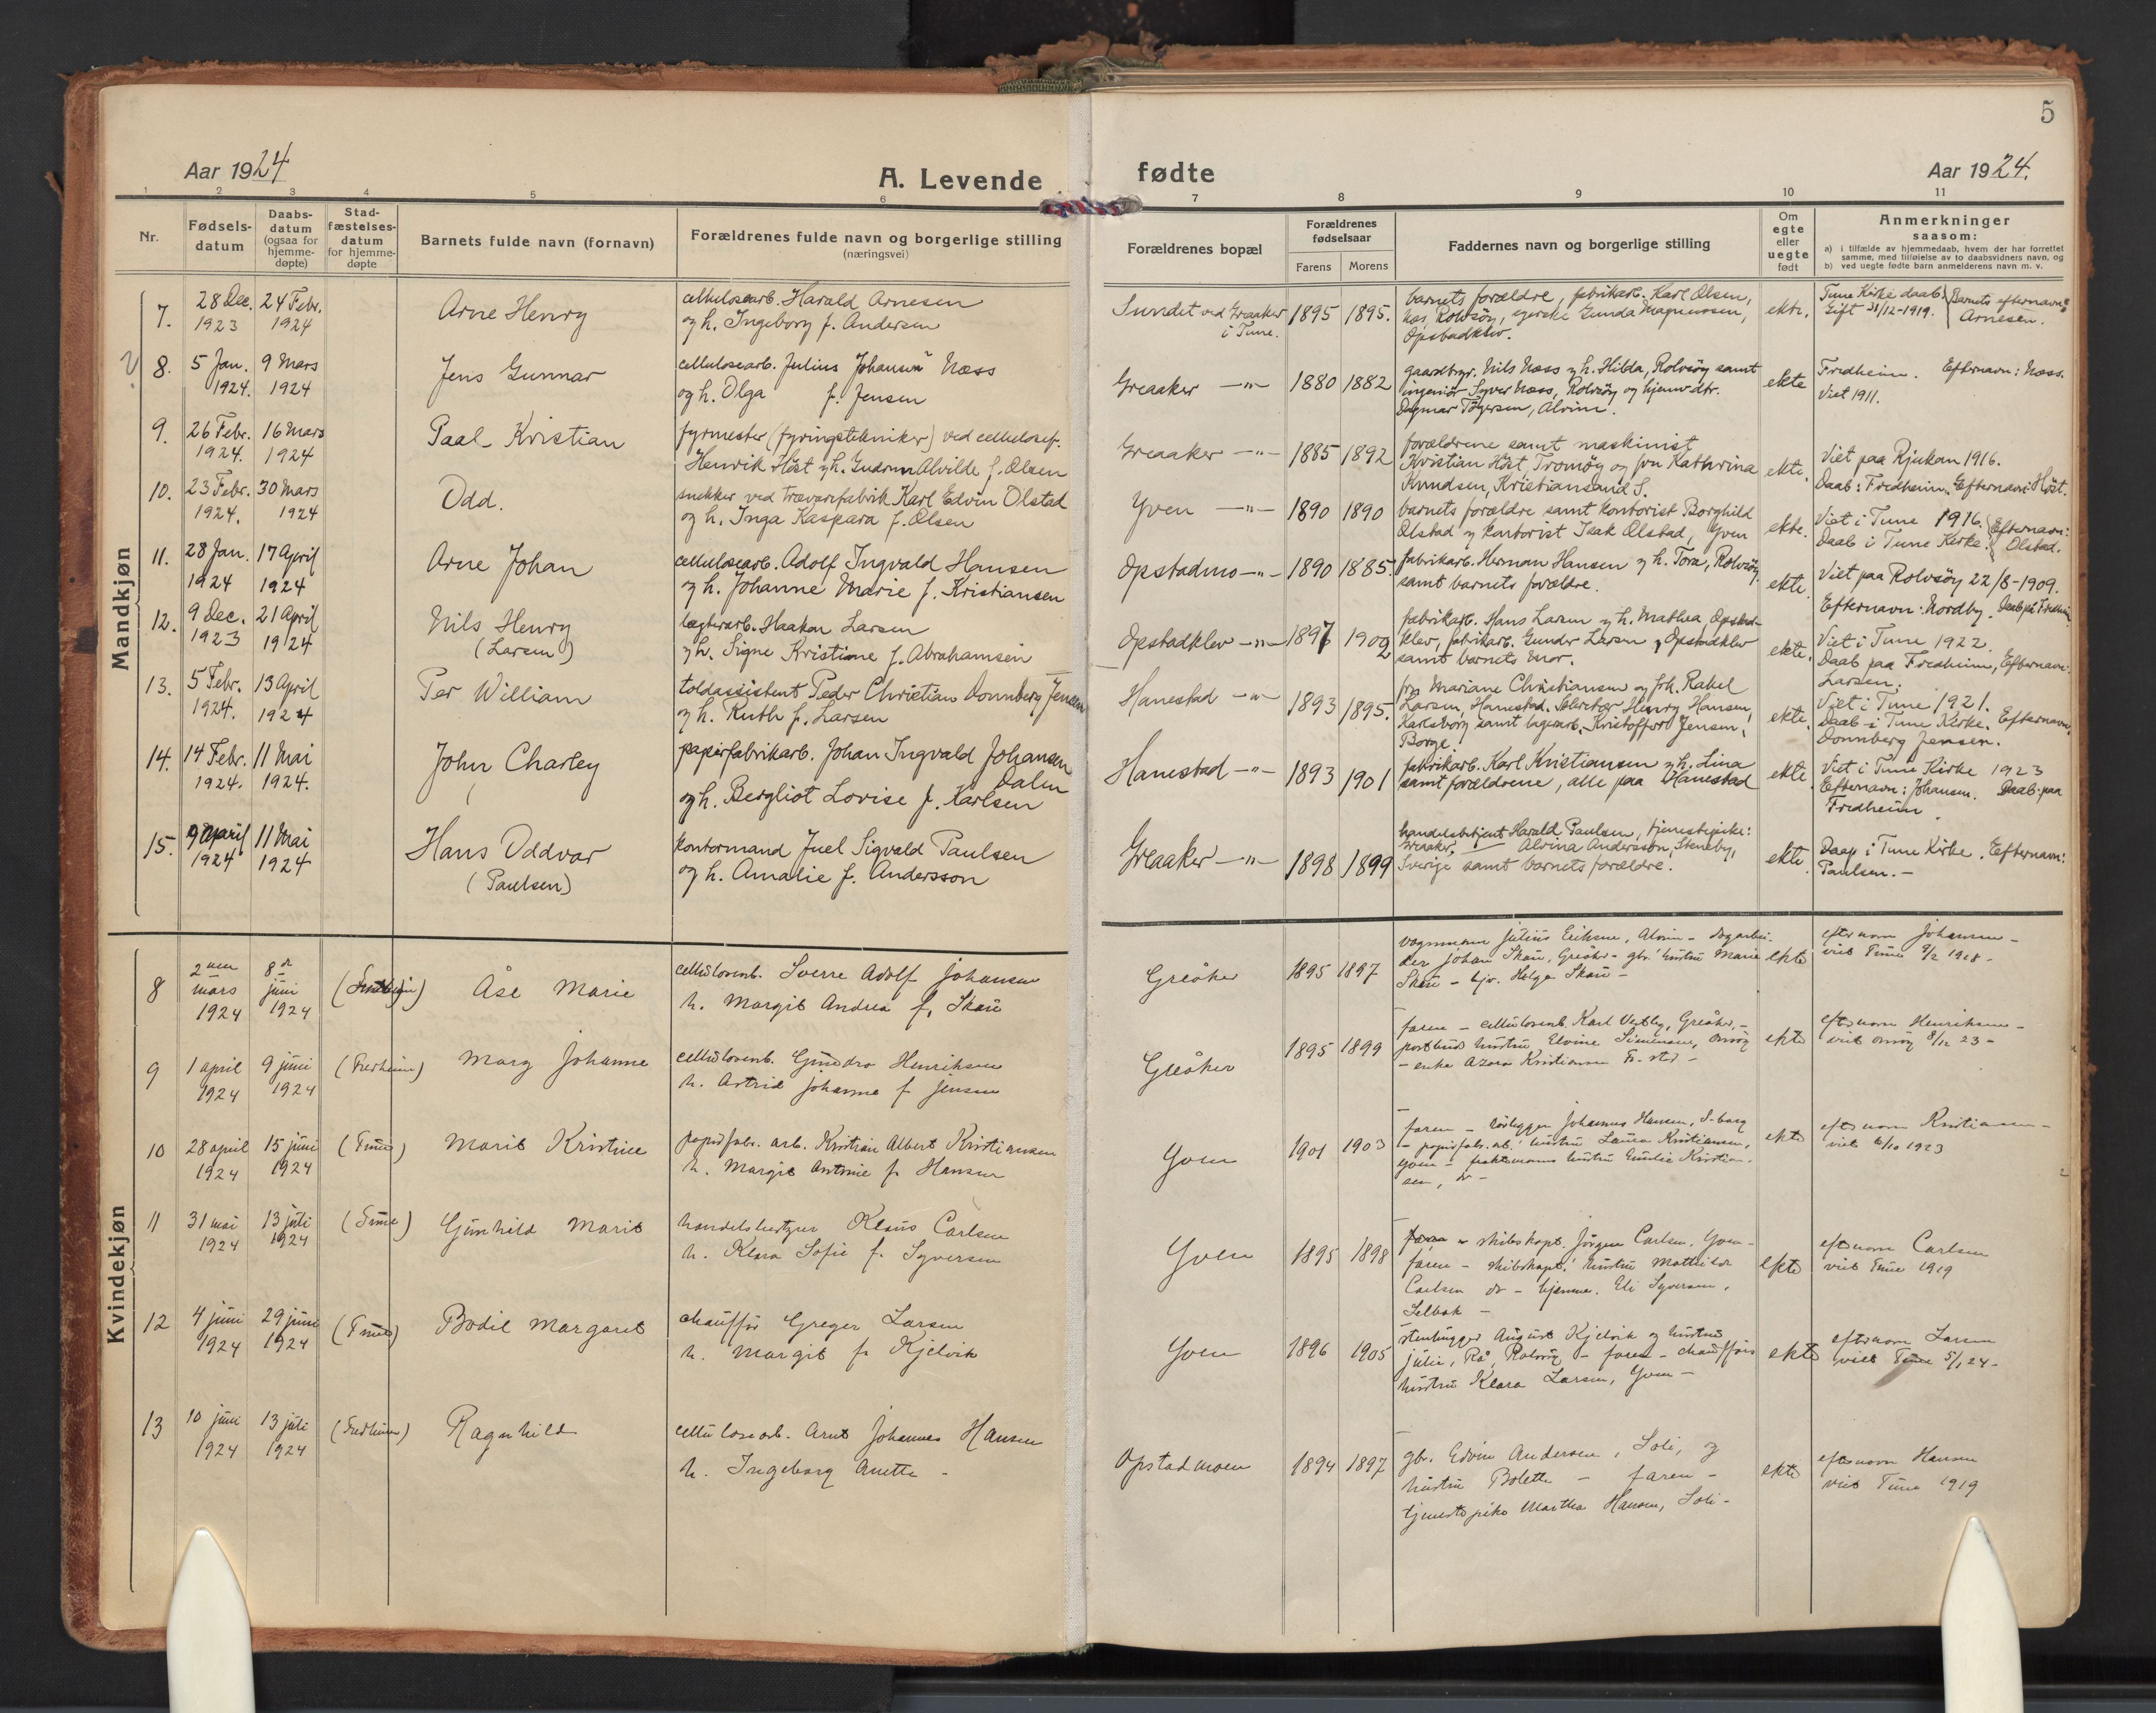 5
Aar 1924
A. Levende fødte
Aar 1924.
1 2 3 4 5 6 7 8 9 10 11
Nr.
Fødsels-
datum
Daabs-
datum
(ogsaa for
hjemme-
døpte)
Stad-
fæstelses-
datum
for hjemme-
døpte
Barnets fulde navn (fornavn)
Forældrenes fulde navn og borgerlige stilling
(næringsvei)
Forældrenes bopæl
Forældrenes
fødselsaar
Farens Morens
Faddernes navn og borgerlige stilling
Om
egte
eller
uegte
født
Anmerkninger
saasom:
a) i tilfælde av hjemmedaab, hvem der har forrettet
samme, med tilføielse av to daabsvidners navn, og
b) ved uegte fødte barn anmelderens navn m. v.
Mandkjøn
7.
28 Dec. 1923
24 Febr. 1924
Arne Henry
cellulosearb. Harald Arnesen
og h. Ingeborg f. Andersen
Sundet ved Greaaker
i Tune.
1895 1895.
barnets forældre, fabrikarb. Karl Olsen,
Rolvsøy, Gunda Magnussen,
Opstadklev.
ekte,
Tune Kirke daab.
Gift 31/12-1919.
Barnets efternavn:
Arnesen.
8.
5 Jan. 1924.
9 Mars 1924
Jens Gunnar
cellulosearb. Julius Johansen Næss
og h. Olga f. Jensen
Greaaker —"—
1880 1882
gaardbrgr. Nils Næss og h. Hilda, Rolvsøy samt
ingeniør Syver Næss, Rolvsøy og hjemv. dtr.
Dagmar Tøgersen, Alvim.
ekte
Fredheim. Efternavn: Næss.
Viet 1911.
9.
26 Febr. 1924.
16 Mars 1924
Paal Kristian
fyrmester (fyringstekniker) ved cellulosef.
Henrik Høst og h. Gudrun Alvilde f. Olsen
Greaaker —"—
1885 1892
forældrene samt maskinist
Kristian Høst, Tromøy og fru Kathrina
Knudsen, Kristiansand S.
ekte.
Viet paa Rjukan 1916.
Daab: Fredheim. Efternavn: Høst.
10.
23 Febr. 1924.
30 Mars 1924
Odd.
snekker ved trævarefabrik Karl Edvin Olstad
og h. Inga Kaspara f. Olsen
Yven —"—
1890 1890
barnets forældre samt kontorist Borghild
Olstad og kontorist Isak Olstad, Yven
ekte.
Viet i Tune 1916.
Daab i Tune Kirke.
Efternavn:
Olstad.
11.
28 Jan. 1924
17 April 1924
Arne Johan
cellulosearb. Adolf Ingvald Hansen
og h. Johanne Marie f. Kristiansen
Opstadmo —"—
1890 1885.
fabrikarb. Herman Hansen og h. Tora, Rolvsøy,
samt barnets forældre.
ekte.
Viet paa Rolvsøy 22/8-1909.
Efternavn: Nordby. Daab på Fredheim
12.
9 Dec. 1923
21 April 1924
Nils Henry
(Larsen)
lægterarb. Haakon Larsen
og h. Signe Kristiane f. Abrahamsen
Opstadklev —"—
1897 1902
fabrikarb. Hans Larsen og h. Mathea, Opstad-
klev, fabrikarb. Gunder Larsen, Opstadklev
samt barnets mor.
ekte.
Viet i Tune 1922.
Daab paa Fredheim, Efternavn:
Larsen.
13.
5 Febr. 1924.
13 April 1924
Per William
toldassistent Peder Christian Donnberg Jensen
og h. Ruth f. Larsen
Hanestad —"—
1893 1895.
fru Mariane Christiansen og frk. Rakel
Larsen, Hanestad, Henry Hansen,
Karlsborg samt Kristoffer Jensen,
Borge.
ekte.
Viet i Tune 1921.
Daab i Tune Kirke. Efternavn:
Donnberg Jensen.
14.
14 Febr. 1924.
11 Mai 1924.
John Charley
papirfabrikarb. Johan Ingvald Johansen
Dalen
og h. Bergliot Lovise f. Karlsen
Hanestad —"—
1893 1901
fabrikarb. Karl Kristiansen og h. Lina
samt forældrene, alle paa Hanestad
ekte.
Viet i Tune Kirke 1923
Efternavn: Johansen. Daab: paa
Fredheim.
15.
9 April 1924
11 Mai 1924
Hans Oddvar
(Paulsen)
kontormand Juel Sigvald Paulsen
og h. Amalie f. Andersson
Greaaker —"—
1898 1899
handelsbetjent Harald Paulsen, tjenestepike:
Greaaker, Alvina Andersson, Stensby,
Sverige samt barnets forældre.
ekte.
Daap i Tune Kirke. Efternavn:
Paulsen.—
Kvindekjøn
8
2 mars 1924
8de juni 1924
Åse Marie
cellulosearb. Sverre Adolf Johansen
h. Margit Andrea f. Skau
Greåker
1895 1897
vognmann Julius Eriksen, Alvim - dagarbei-
der Johan Skau, Greåker - gbr. hustru Marie
Skau - hjv. Helga Skau -
ekte
efternavn Johansen -
viet Tune 9/2 1918 -
9
1 april 1924
9 juni 1924
(Fredheim)
Mary Johanne
cellulosearb. Gunder Henriksen
h. Astrid Johanne f. Jensen
Greåker
1895 1899
faren - cellulosearb. Karl Vestby, Greåker, -
postbud hustru Elvine Simensen, Onsøy
- enke Azora Kristiansen Fr. stad -
ekte
efternavn Henriksen -
viet Onsøy 8/12 23 -
10
28 april 1924
15 juni 1924
(Tune)
Marit Kristine
papirfabr. arb. Kristian Albert Kristiansen
h. Margit Antonie f. Hansen
Yven
1901 1903
faren - rørlegger Johannes Hansen, S-borg
- papirfabr. arb. hustru Laura Kristiansen,
Yven - hustru Emilie Kristian-
sen, do -
ekte
efternavn Kristiansen -
viet 6/10 1923
11
31 mai 1924
13 juli 1924
(Tune)
Gunhild Marit
handelsbestyrer Klaus Carlsen
h. Klara Sofie f. Syversen
Yven
1895 1898
skibskapt. Jørgen Carlsen, Yven -
faren - skibskapt. hustru Mathilde
Carlsen do - hjemmev. Eli Syversen,
Selbak -
ekte
efternavn Carlsen
viet Tune 1919
12
4 juni 1924
29 juni 1924
(Tune)
Bodil Margaret
chauffør Greger Larsen
h. Margit f. Kjelvik
Yven
1896 1905
stenhugger August Kjelvik og hustru
Julie, Rå, Rolvsøy - faren - chaufførs
hustru Klara Larsen, Yven -
ekte
efternavn Larsen
viet Tune 5/1 24 -
13
10 juni 1924
13 juli 1924
(Fredheim)
Ragnhild
cellulosearb. Arnt Johannes Hansen
h. Ingeborg Anette -
Opstadmoen
1894 1897
gbr. Edvin Andersen, Soli, og
hustru Bolette - faren -
tjenestepike Martha Hansen, Soli -
ekte
efternavn Hansen
viet Tune 1919